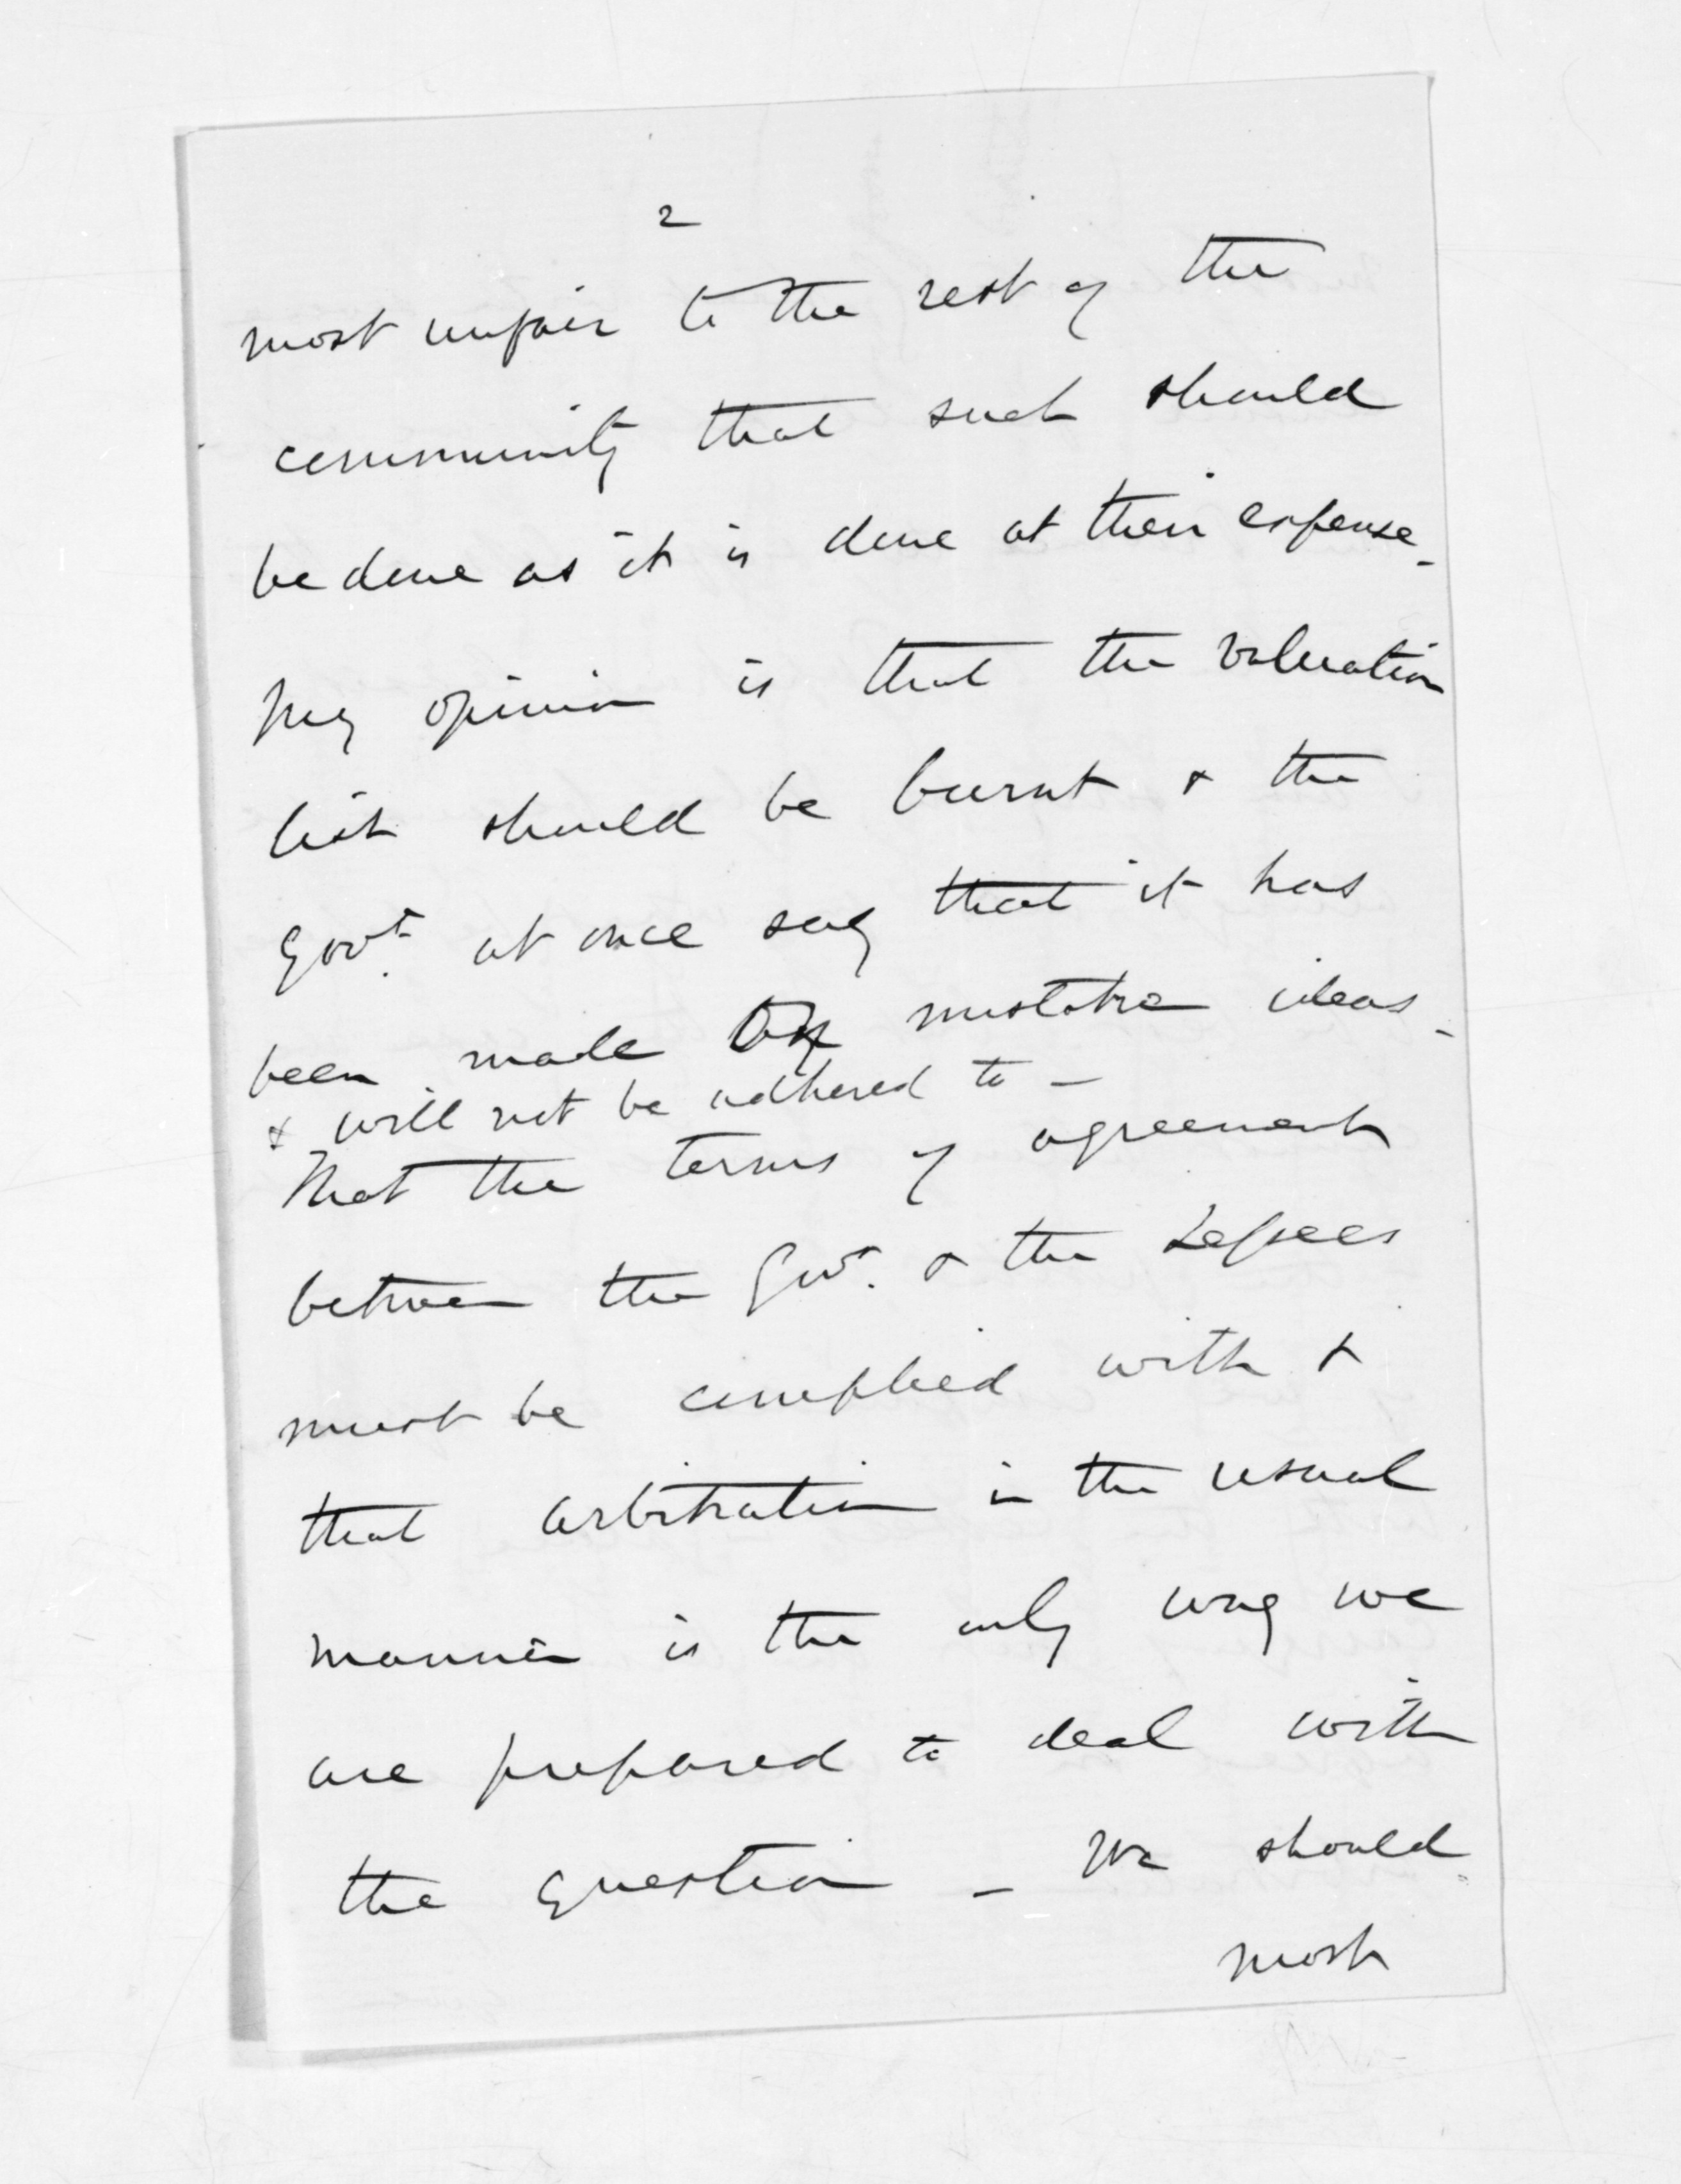 2
most unfair to the rest of the
community that such should
be done as it is done at their expense_
My opinion is that the valuation
list should be burnt & the
Govt. at once say that it has
been made on mistaken ideas_
& will not be adhered to _
That the terms of agreement
between the Govt. & the Lessees
must be complied with &
that arbitration in the usual
manner is the only way we
are prepared to deal with
the question _ We should
most